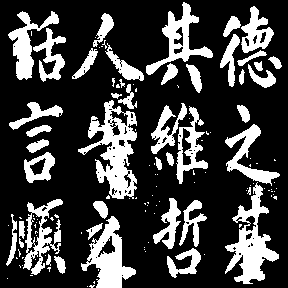 德之基
其維哲
人告之
話言順